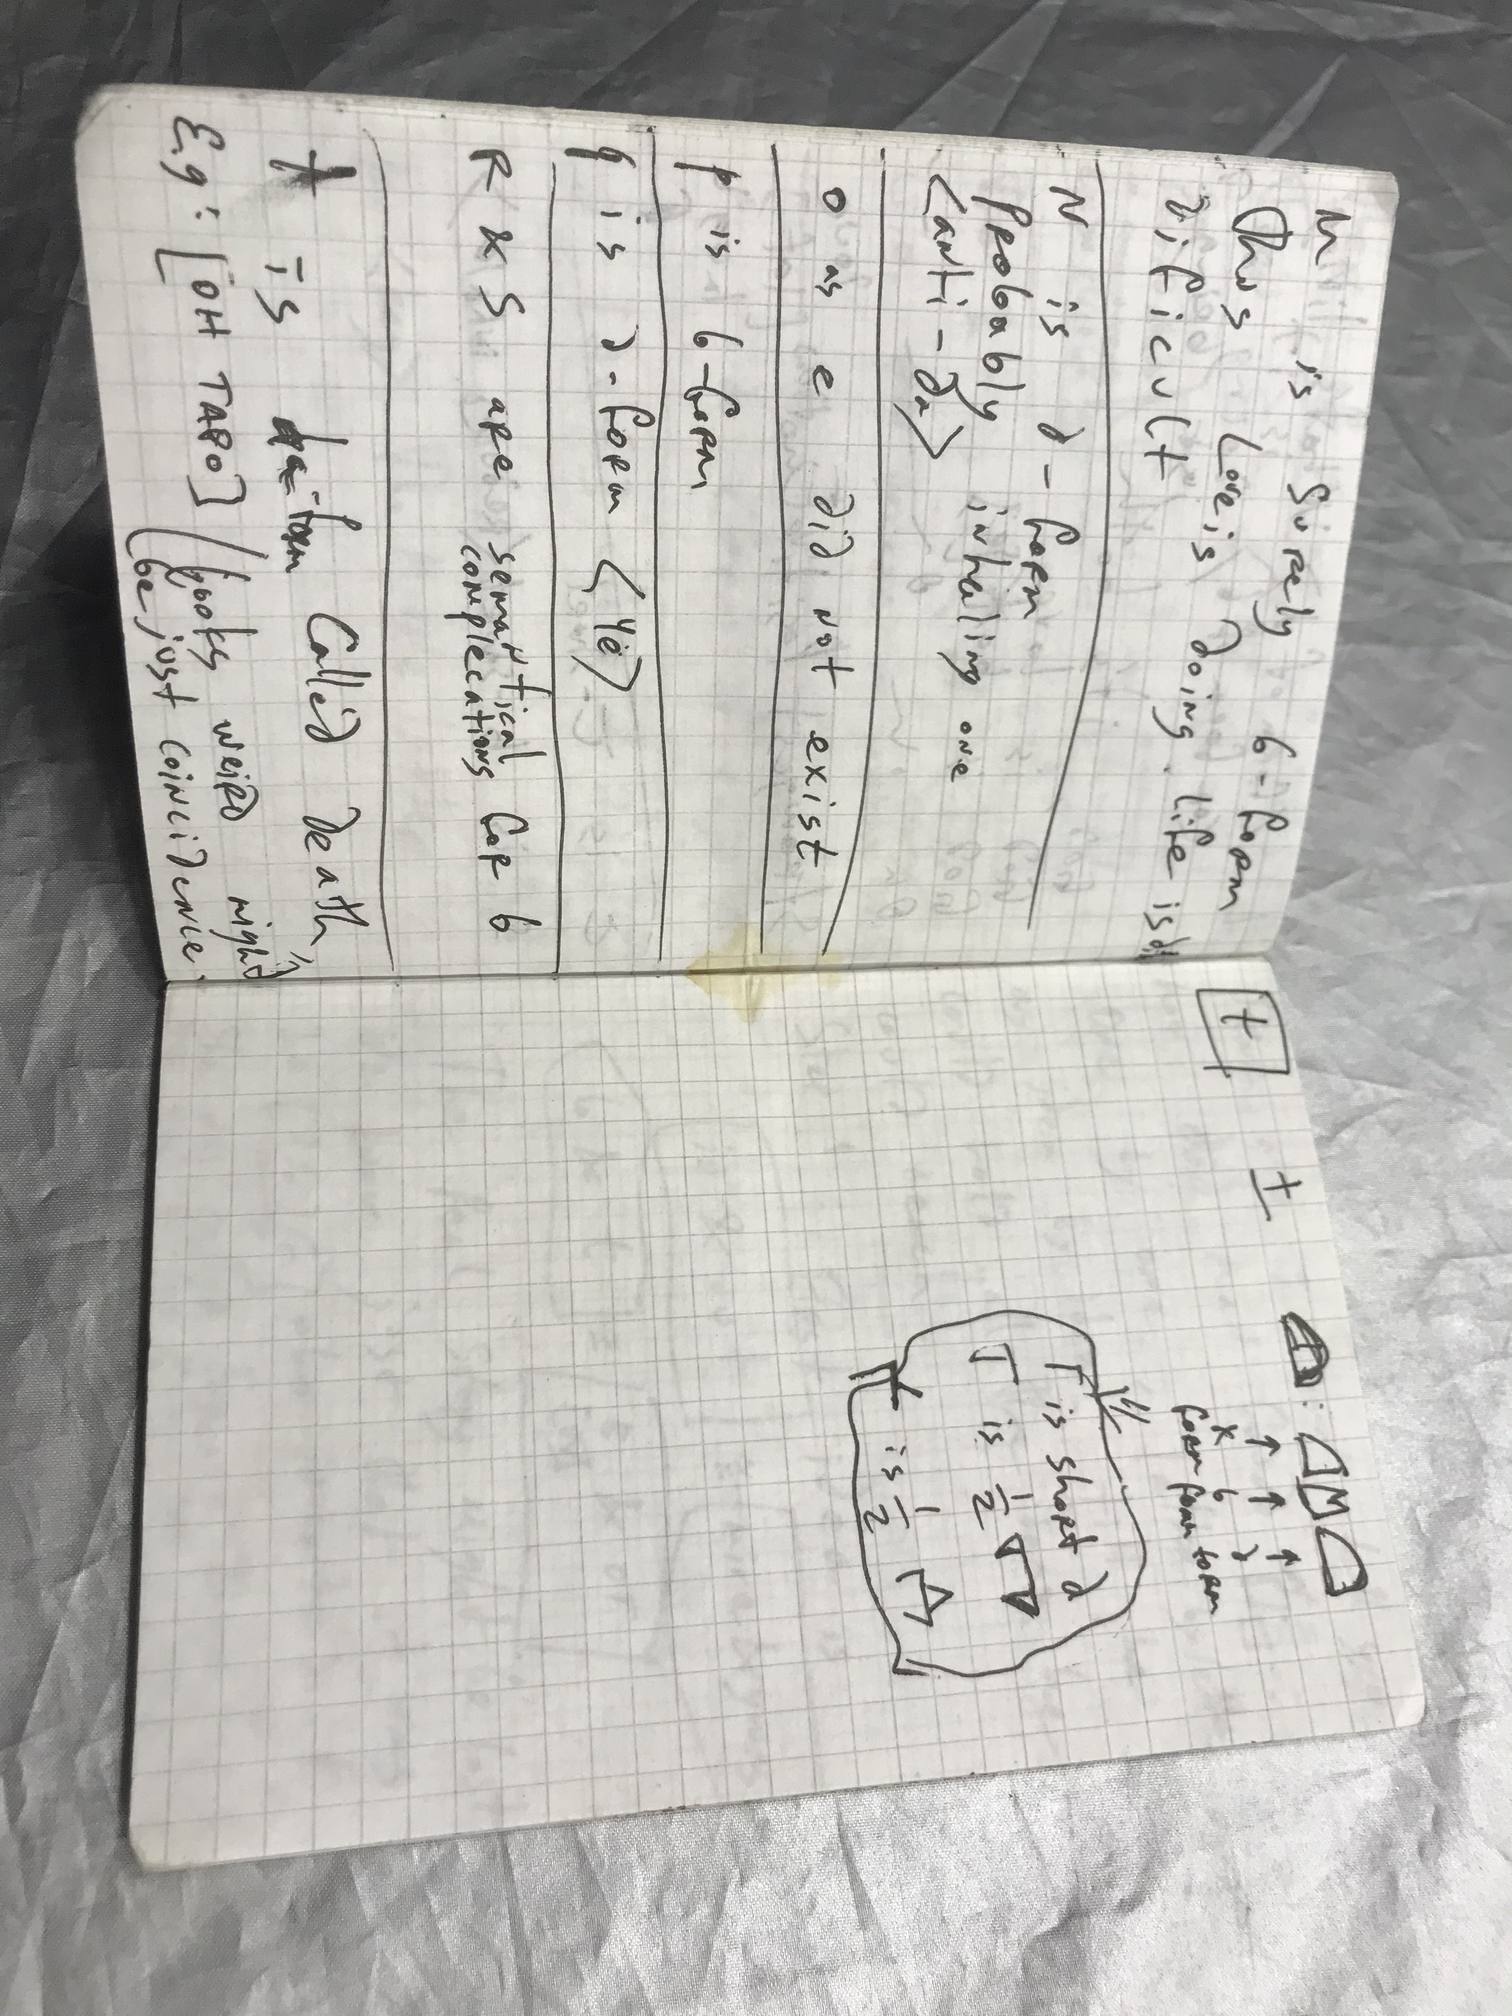 M is Surely 6-form
Thus Love is doing. life is di
dificult
N is d-form
Probably inhaling one
<anti-da>
o as e did not exist
p is 6-form
q is d-form <4ē>
R & S are semantical
complecations for 6
t is form Called death,
E.g: [OH TAPO] (looks weird might
be just coincidence.
+
±
: M
↑ ↑ ↑
x 6 d
form form form
r is short d
T is 1/2
is 1/2